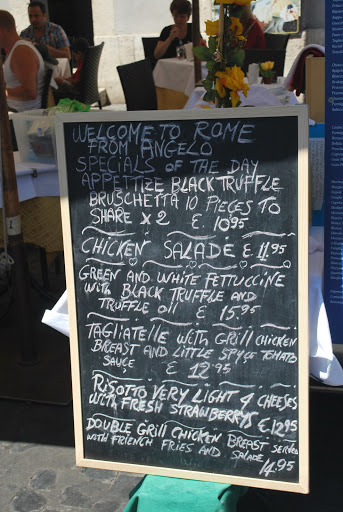 WELCOME TO ROME
FROM ANGELO
SPECIALS OF THE DAY
APPETIZE BLACK TRUFFLE
BRUSCHETTA 10 PIECES TO
SHARE x 2 £. 10.95
CHICKEN SALADE £. 11.95
GREEN AND WHITE FETTUCCINE
WITH BLACK TRUFFLE AND
TRUFFLE OIL £ 15.95
TAGLIATELLE WITH GRILL CHICKEN
BREAST AND LITTLE SPYCE TOMATO
SAUCE £ 12.95
RISOTTO VERY LIGHT 4 CHEESES
WITH FRESH STRAWBERRYS £12.95
DOUBLE GRILL CHICKEN BREAST SERVED
WITH FRIENCH FRIES AND SALADE
14.95